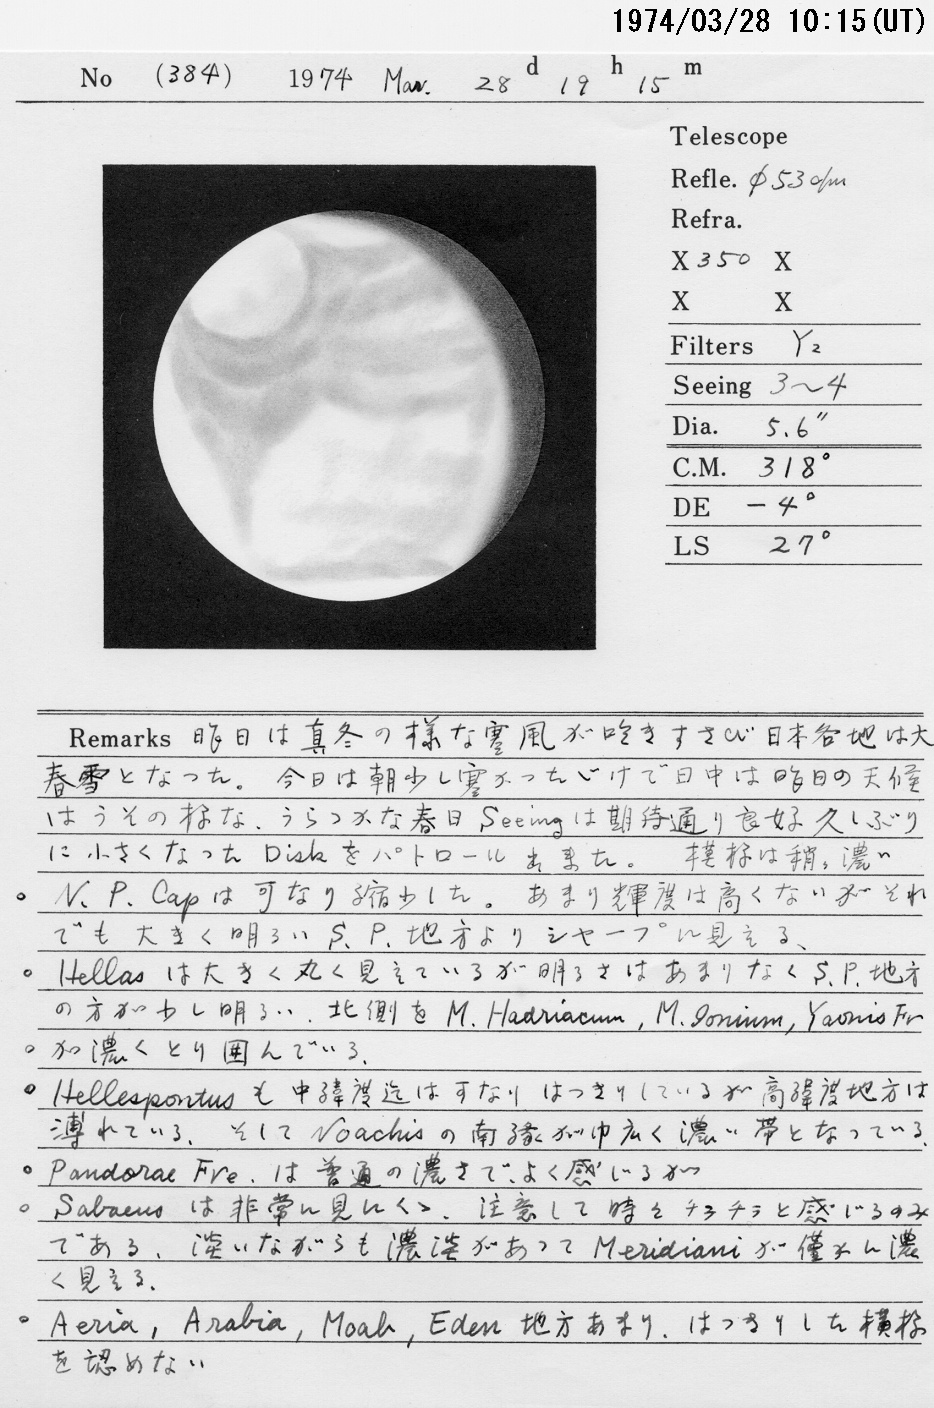 1974/03/28 10:15(UT)
No (384) 1974 Mar. 28 d 19 h 15 m
Telescope
Refle. φ53cm
Refra.
X 350 X
X X
Filters Y2
Seeing 3〜4
Dia. 5.6"
C.M. 318°
DE −4°
LS 27°
Remarks 昨日は真冬の様な寒風が吹きすさび日本各地は大
春雪となった。今日は朝少し寒かっただけで日中は昨日の天候
はうその様な、うらゝかな春日Seeingは期待通り良好久しぶり
に小さくなったDiskをパトロール出来た。模様は稍々濃い
• N. P. Capは可なり縮少した。あまり輝度は高くないがそれ
でも大きく明るいS. P. 地方よりシャープに見える、
• Hellasは大きく丸く見えているが明るさはあまりなくS.P.地方
の方が少し明るい、北側をM. Hadriacum, M. Ionium, Yaonis Fr
• が濃くとり囲んでいる、
• Hellespontusも中緯度迄はかなりはっきりしているが高緯度地方は
薄れている、そしてNoachisの南縁が巾広く濃い帯となっている、
• Pandorae Fre. は普通の濃さで、よく感じるが
• Sabaeusは非常に見にくゝ、注意して時々チラチラと感じるのみ
である、淡いながらも濃淡があってMeridianiが僅かに濃
く見える、
• Aeria, Arabia, Moab, Eden 地方あまり、はっきりした模様
を認めない